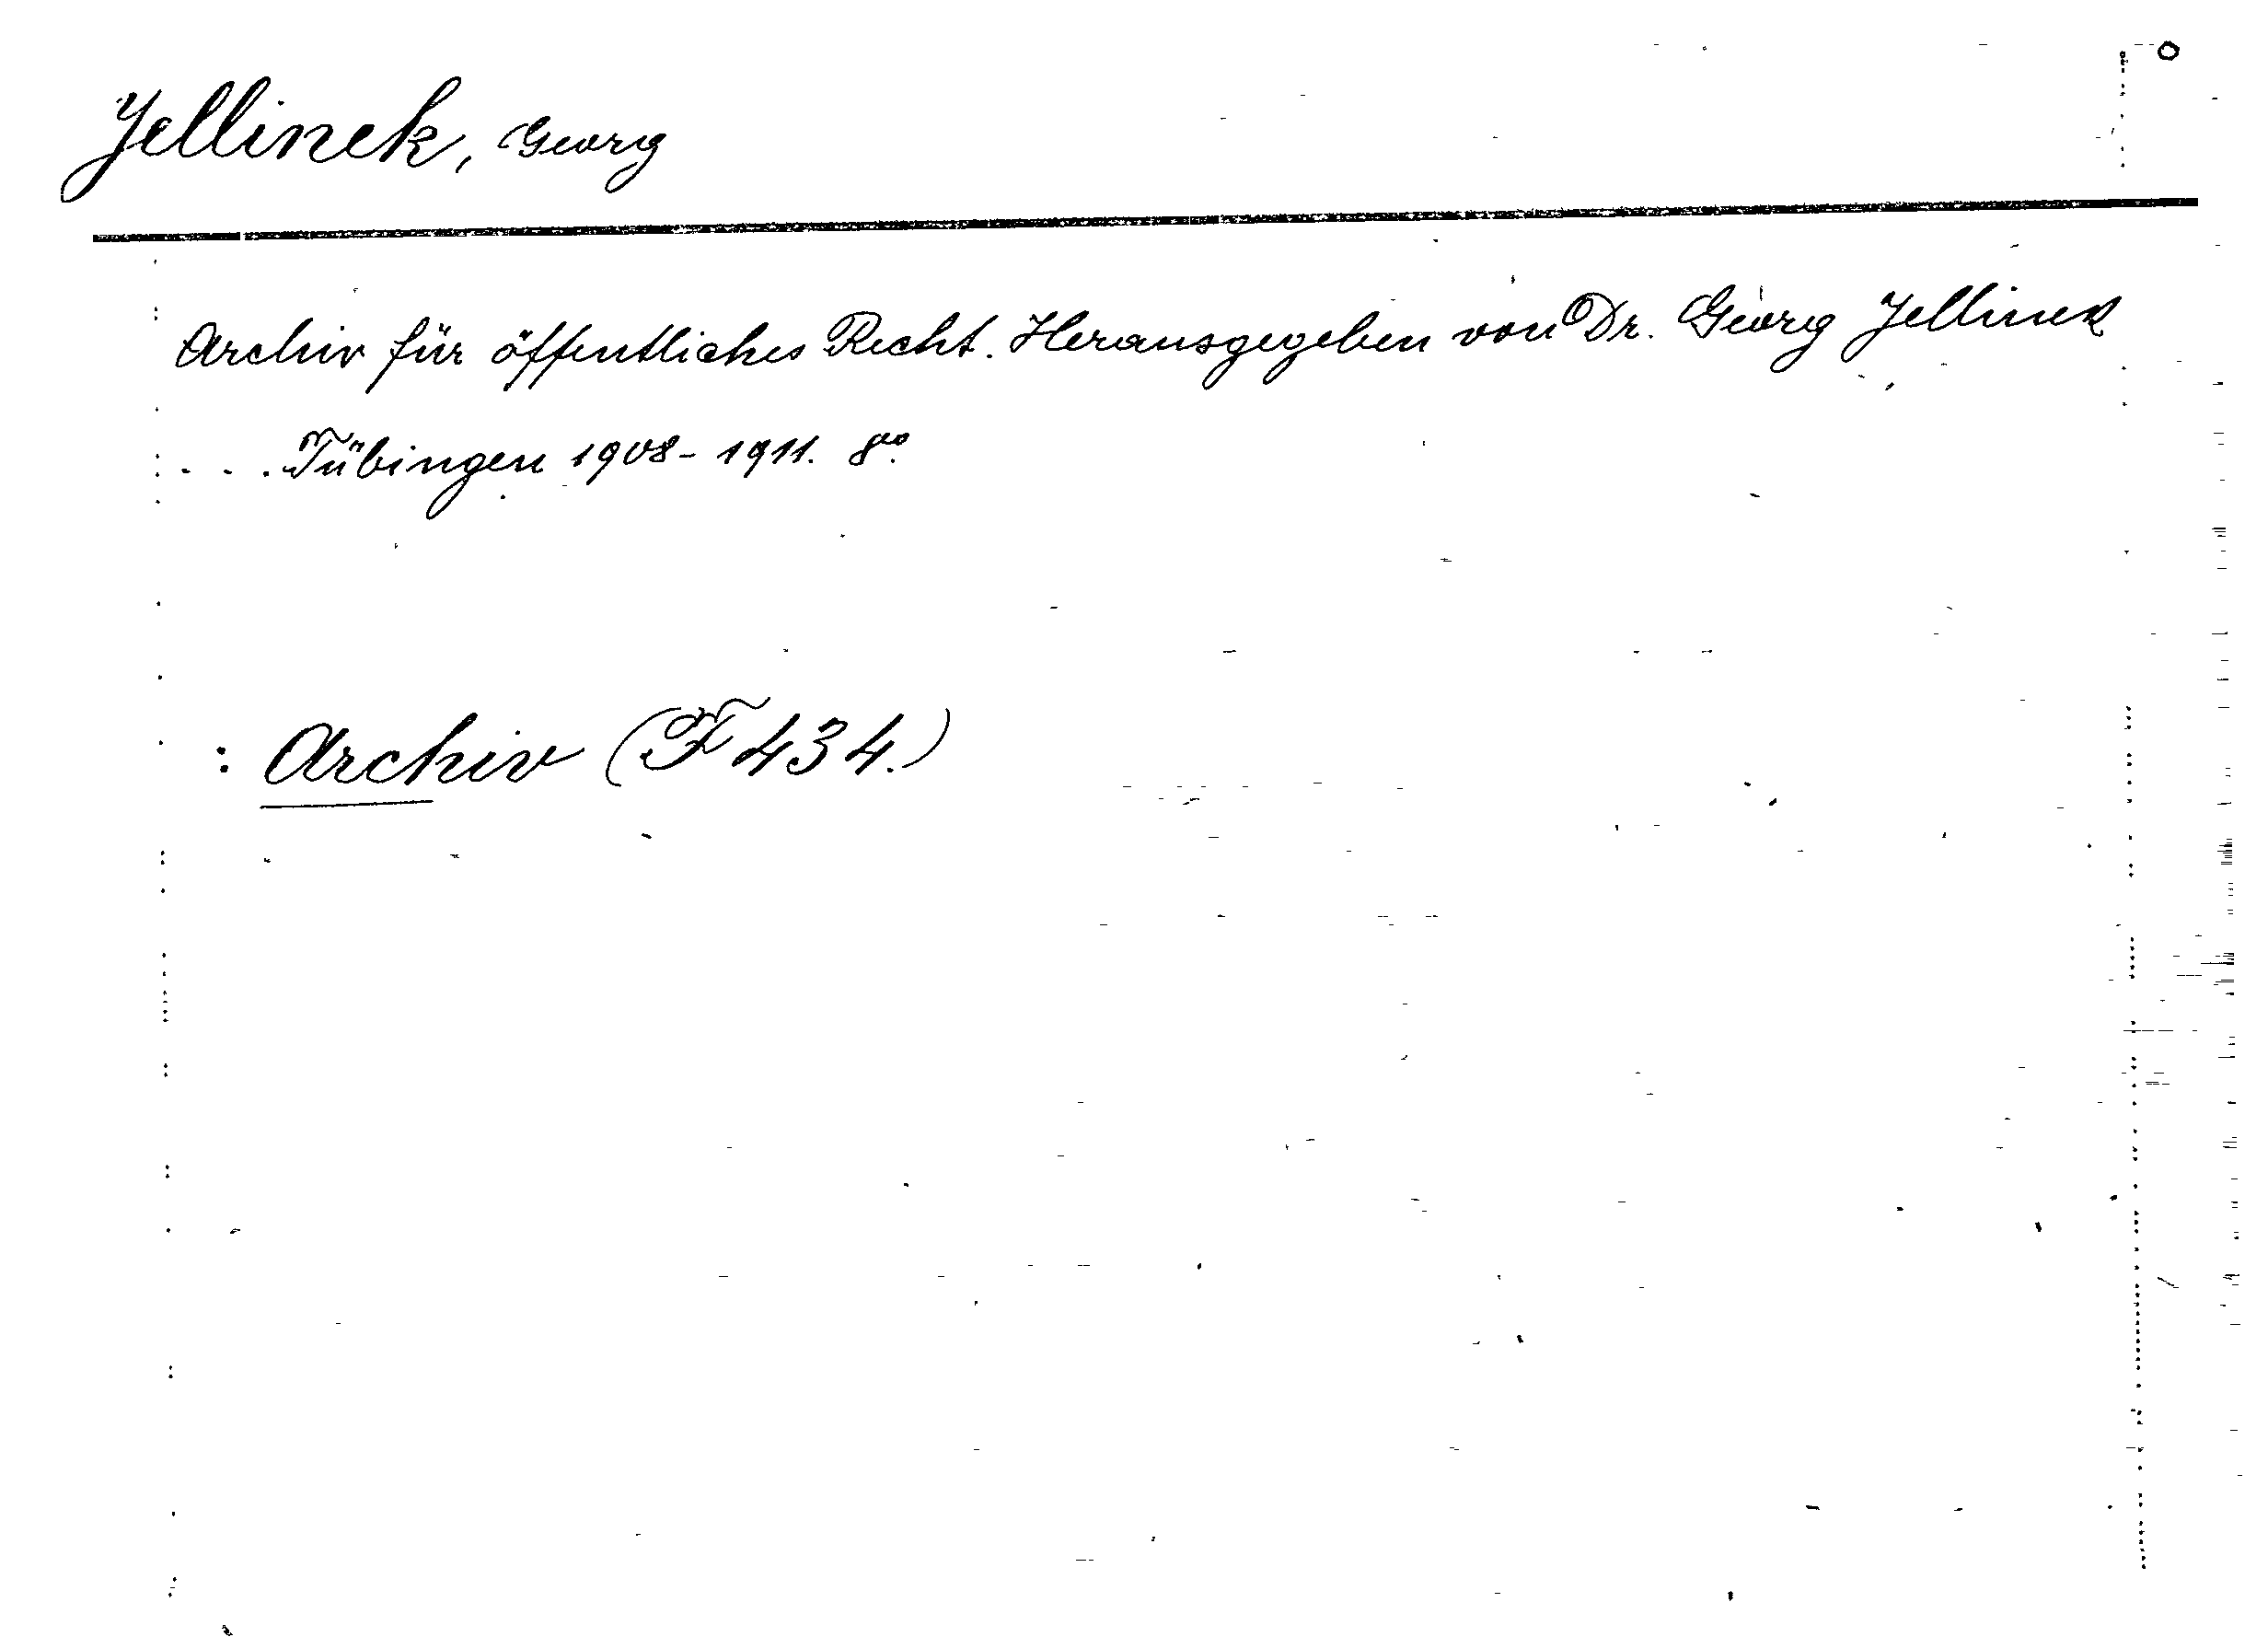 Jellinek, Georg
Archiv für öffentliches Recht. Herausgegeben von Dr. Georg Jellinek
. . . Tübingen 1908-1911. 8vo.
: Archiv (F 434.)